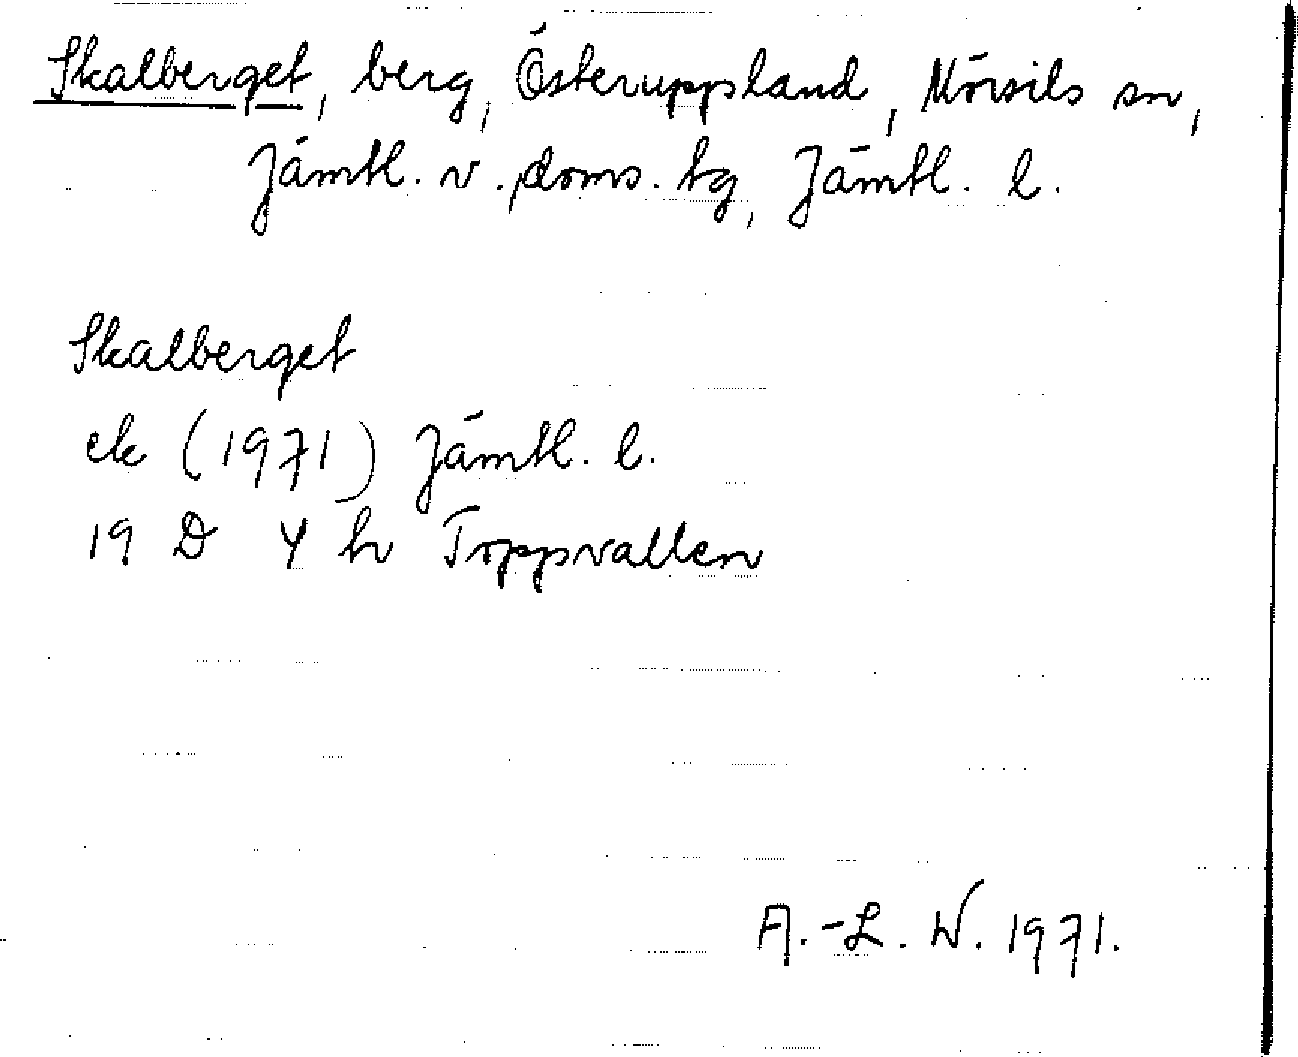 Skalberget, berg, Österuppland, Mörsils sn,
Jämtl. v. doms. tg, Jämtl. l.
Skalberget
ek (1971) Jämtl. l.
19 D Y h Toppvallen
A.-L. W. 1971.